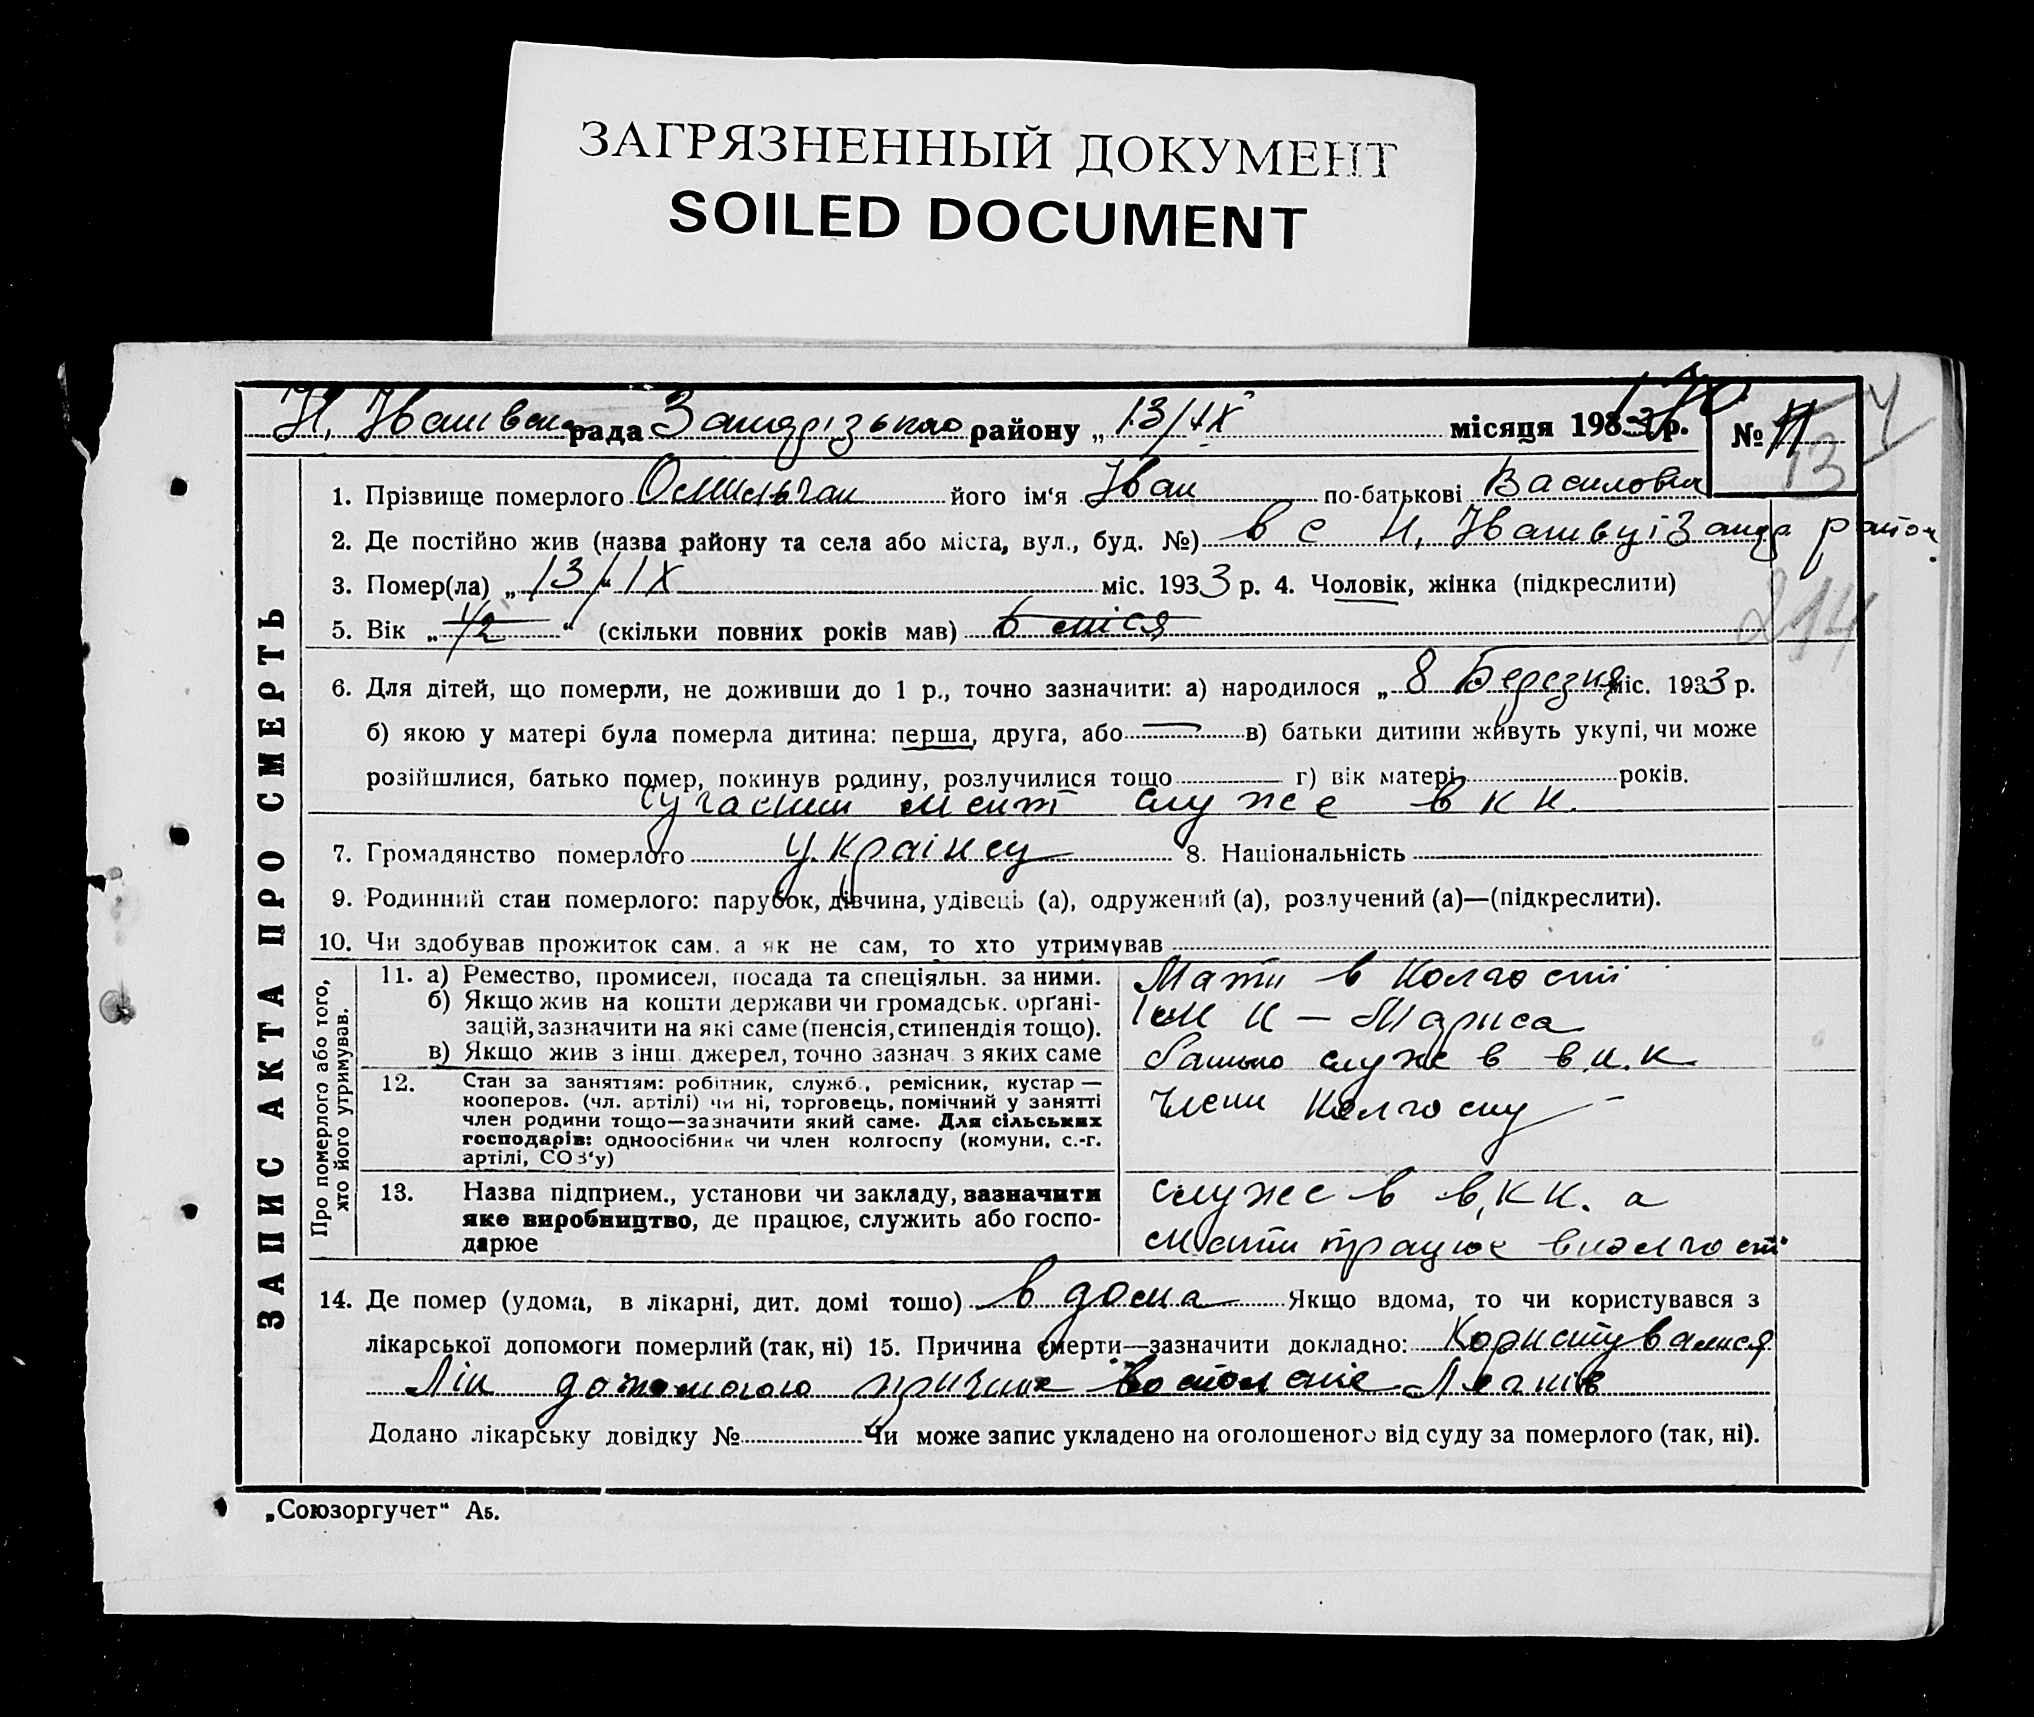 ЗАГРЯЗНЕННЫЙ ДОКУМЕНТ
SOILED DOCUMENT
рада району „13/IX місяця 193 р. №
13
ЗАПИС АКТА ПРО СМЕРТЬ
1. Прізвище померлого його ім‘я Іван по-батькові
2. Де постійно жив (назва району та села або міста, вул., буд. №) в с Н. район
3. Помер(ла) „13/IX міс. 1933 р. 4. Чоловік, жінка (підкреслити)
214
5. Вік „1/2“ (скільки повних років мав) 6 міся
6. Для дітей, що померли, не доживши до 1 р., точно зазначити: а) народилося „8 Березня міс. 1933 р.
б) якою у матері була померла дитина: перша, друга, або — в) батьки дитини живуть укупі, чи може
розійшлися, батько помер, покинув родину, розлучилися тощо г) вік матері років.
служе в
7. Громадянство померлого україну 8. Національність
9. Родинний стан померлого: парубок, дівчина, удівець (а), одружений (а), розлучений (а)—(підкреслити).
10. Чи здобував прожиток сам. а як не сам, то хто утримував
Про померлого або того, хто його утримував.
11. а) Ремество, промисел, посада та спеціяльн. за ними. Мати в колгоспі
б) Якщо жив на кошти держави чи громадськ. орґані-
зацій, зазначити на які саме (пенсія, стипендія тощо).
в) Якщо жив з інш. джерел, точно зазнач. з яких саме батько служе в в.к.к
12. Стан за заняттям: робітник, служб., ремісник, кустар —
кооперов. (чл. артілі) чи ні, торговець, помічний у занятті
член родини тощо—зазначити який саме. Для сільських
господарів: одноосібник чи член колгоспу (комуни, с.-г.
артілі, СОЗ‘у)
Член колгоспу
13. Назва підприєм., установи чи закладу, зазначити служе в в.к.к. а
яке виробництво, де працює, служить або госпо-
дарює мати працює в колгоспі
14. Де помер (удома, в лікарні, дит. домі тошо) в дома Якщо вдома, то чи користувався з
лікарської допомоги померлий (так, ні) 15. Причина смерти—зазначити докладно: Користувалися
Лік допомогою причина Легнів
Додано лікарську довідку № Чи може запис укладено на оголошеного від суду за померлого (так, ні).
„Союзоргучет“ А5.